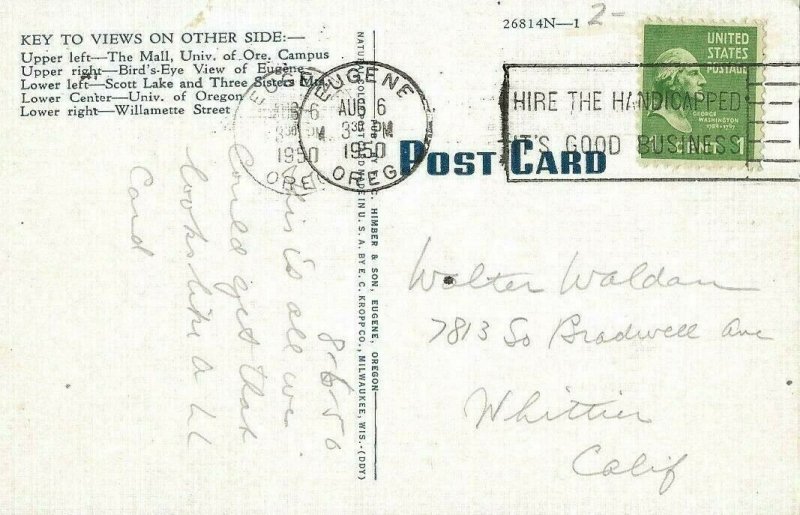 KEY TO VIEWS ON OTHER SIDE:—
Upper left—The Mall, Univ. of Ore. Campus
Upper right—Bird's-Eye View of Eugene
Lower left—Scott Lake and Three Sisters Mts.
Lower Center—Univ. of Oregon
Lower right—Willamette Street
26814N—1
2-
UNITED
STATES
POSTAGE
GEORGE
WASHINGTON
1789-1797
EUGENE
AUG 6
3 30 PM
1950
OREG
EUGENE
AUG 6
3 30 PM
1950
OREG
HIRE THE HANDICAPPED
IT'S GOOD BUSINESS
POST CARD
HIMBER & SON, EUGENE, OREGON
MADE IN U. S. A. BY E. C. KROPP CO., MILWAUKEE, WIS.-(DDY)
8-6-50
This is all we
Could get that
looks like a U
Card
Walter Waldan
7813 So Bradwell Ave
Whittier
Calif